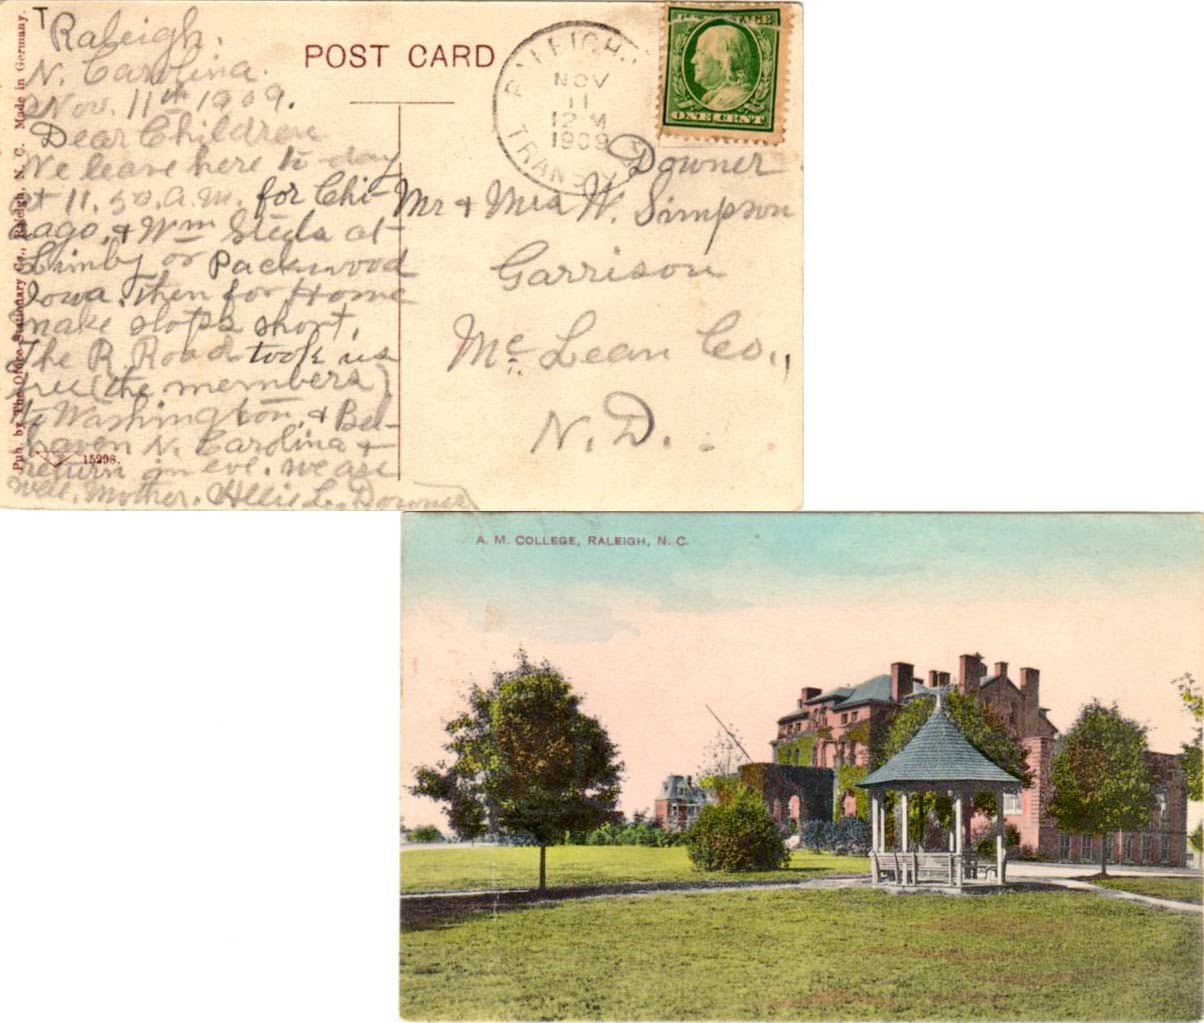 Raleigh.
N. Carolina.
Nov. 11th 1909.
Dear Children
We leave here to-day
at 11.50. A.M. for Chi-
cago, & Wm Steels at
or Packwood
Iowa. Then for Home
make stops short.
The R. Road took us
free (the members)
to Washington, & Bel-
haven N. Carolina &
return in eve. we are
well. Mother. Allie L. Downer
Pub. by The Office Stationary Co., Raleigh, N. C. Made in Germany.
15298.
POST CARD
RALEIGH, N.C.
NOV
11
12 M
1909
TRANSIT
U.S. POSTAGE
ONE CENT
Downer
Mr & Mrs W. Simpson
Garrison
Mc Lean Co.,
N.D.
A. M. COLLEGE, RALEIGH, N. C.